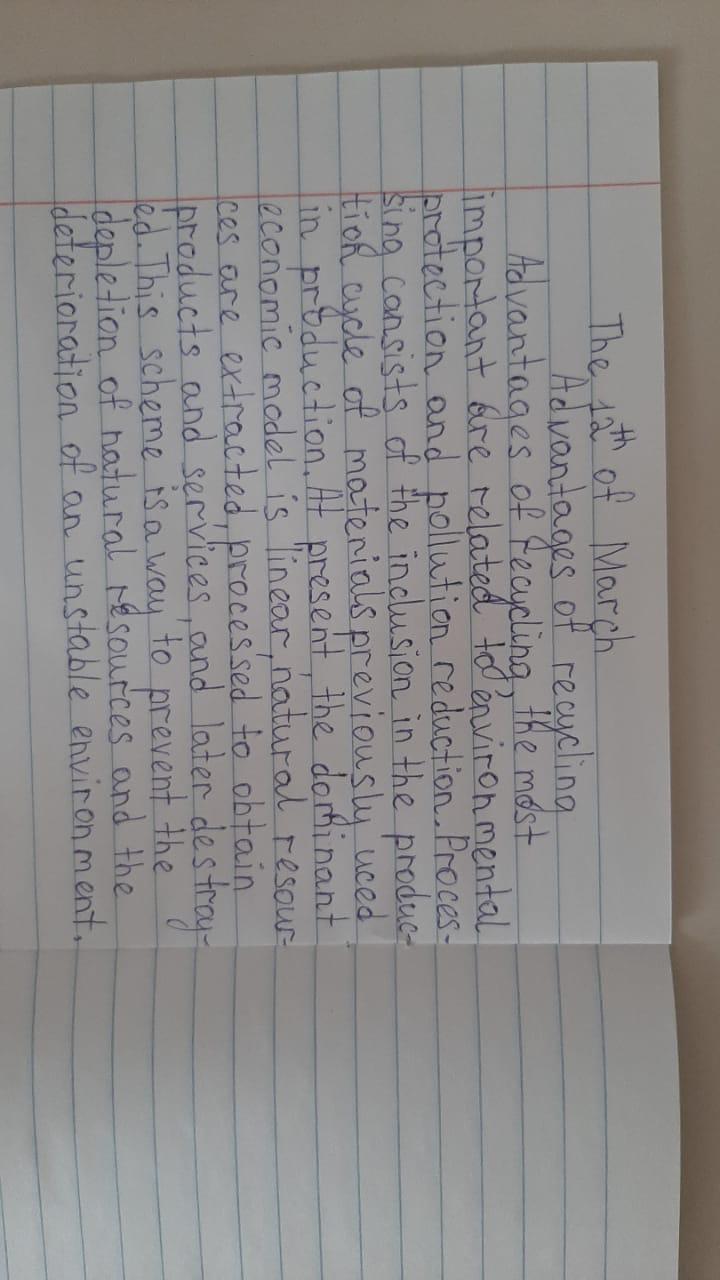 The 12th of March
Advantages of recycling
Advantages of recycling, the most
important are related to environmental
protection and pollution reduction. Proces-
sing consists of the inclusion in the produc-
tion cycle of materials previously uced
in production. At present the dominant
economic model is linear, natural resour-
ces are extracted, processed to obtain
products and services, and later destray-
ed. This scheme is a way to prevent the
depletion of natural resources and the
deterioration of an unstable environment.